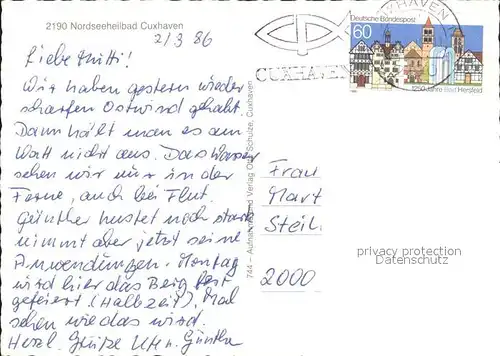 2190 Nordseeheilbad Cuxhaven
2/3 86
Liebe Mutti!
Wir haben gestern wieder
scharfen Ostwind gehabt.
Dann hält man es am
Watt nicht aus. Das Wasser
sehen wir nur in der
Ferne, auch bei Flut.
Günther hustet noch stark
nimmt aber jetzt seine
Anwendungen. Montag
wird hier das Berg fest
gefeiert. (Halbzeit). Mal
sehen wie das wird.
Herzl. Grüße Ute u. Günther
744 – Aufnahme und Verlag Schulze, Cuxhaven
CUXHAVEN
CUXHAVEN
Deutsche Bundespost
60
1250 Jahre Bad Hersfeld
Frau
Mart
Steil.
2000
privacy protection
Datenschutz